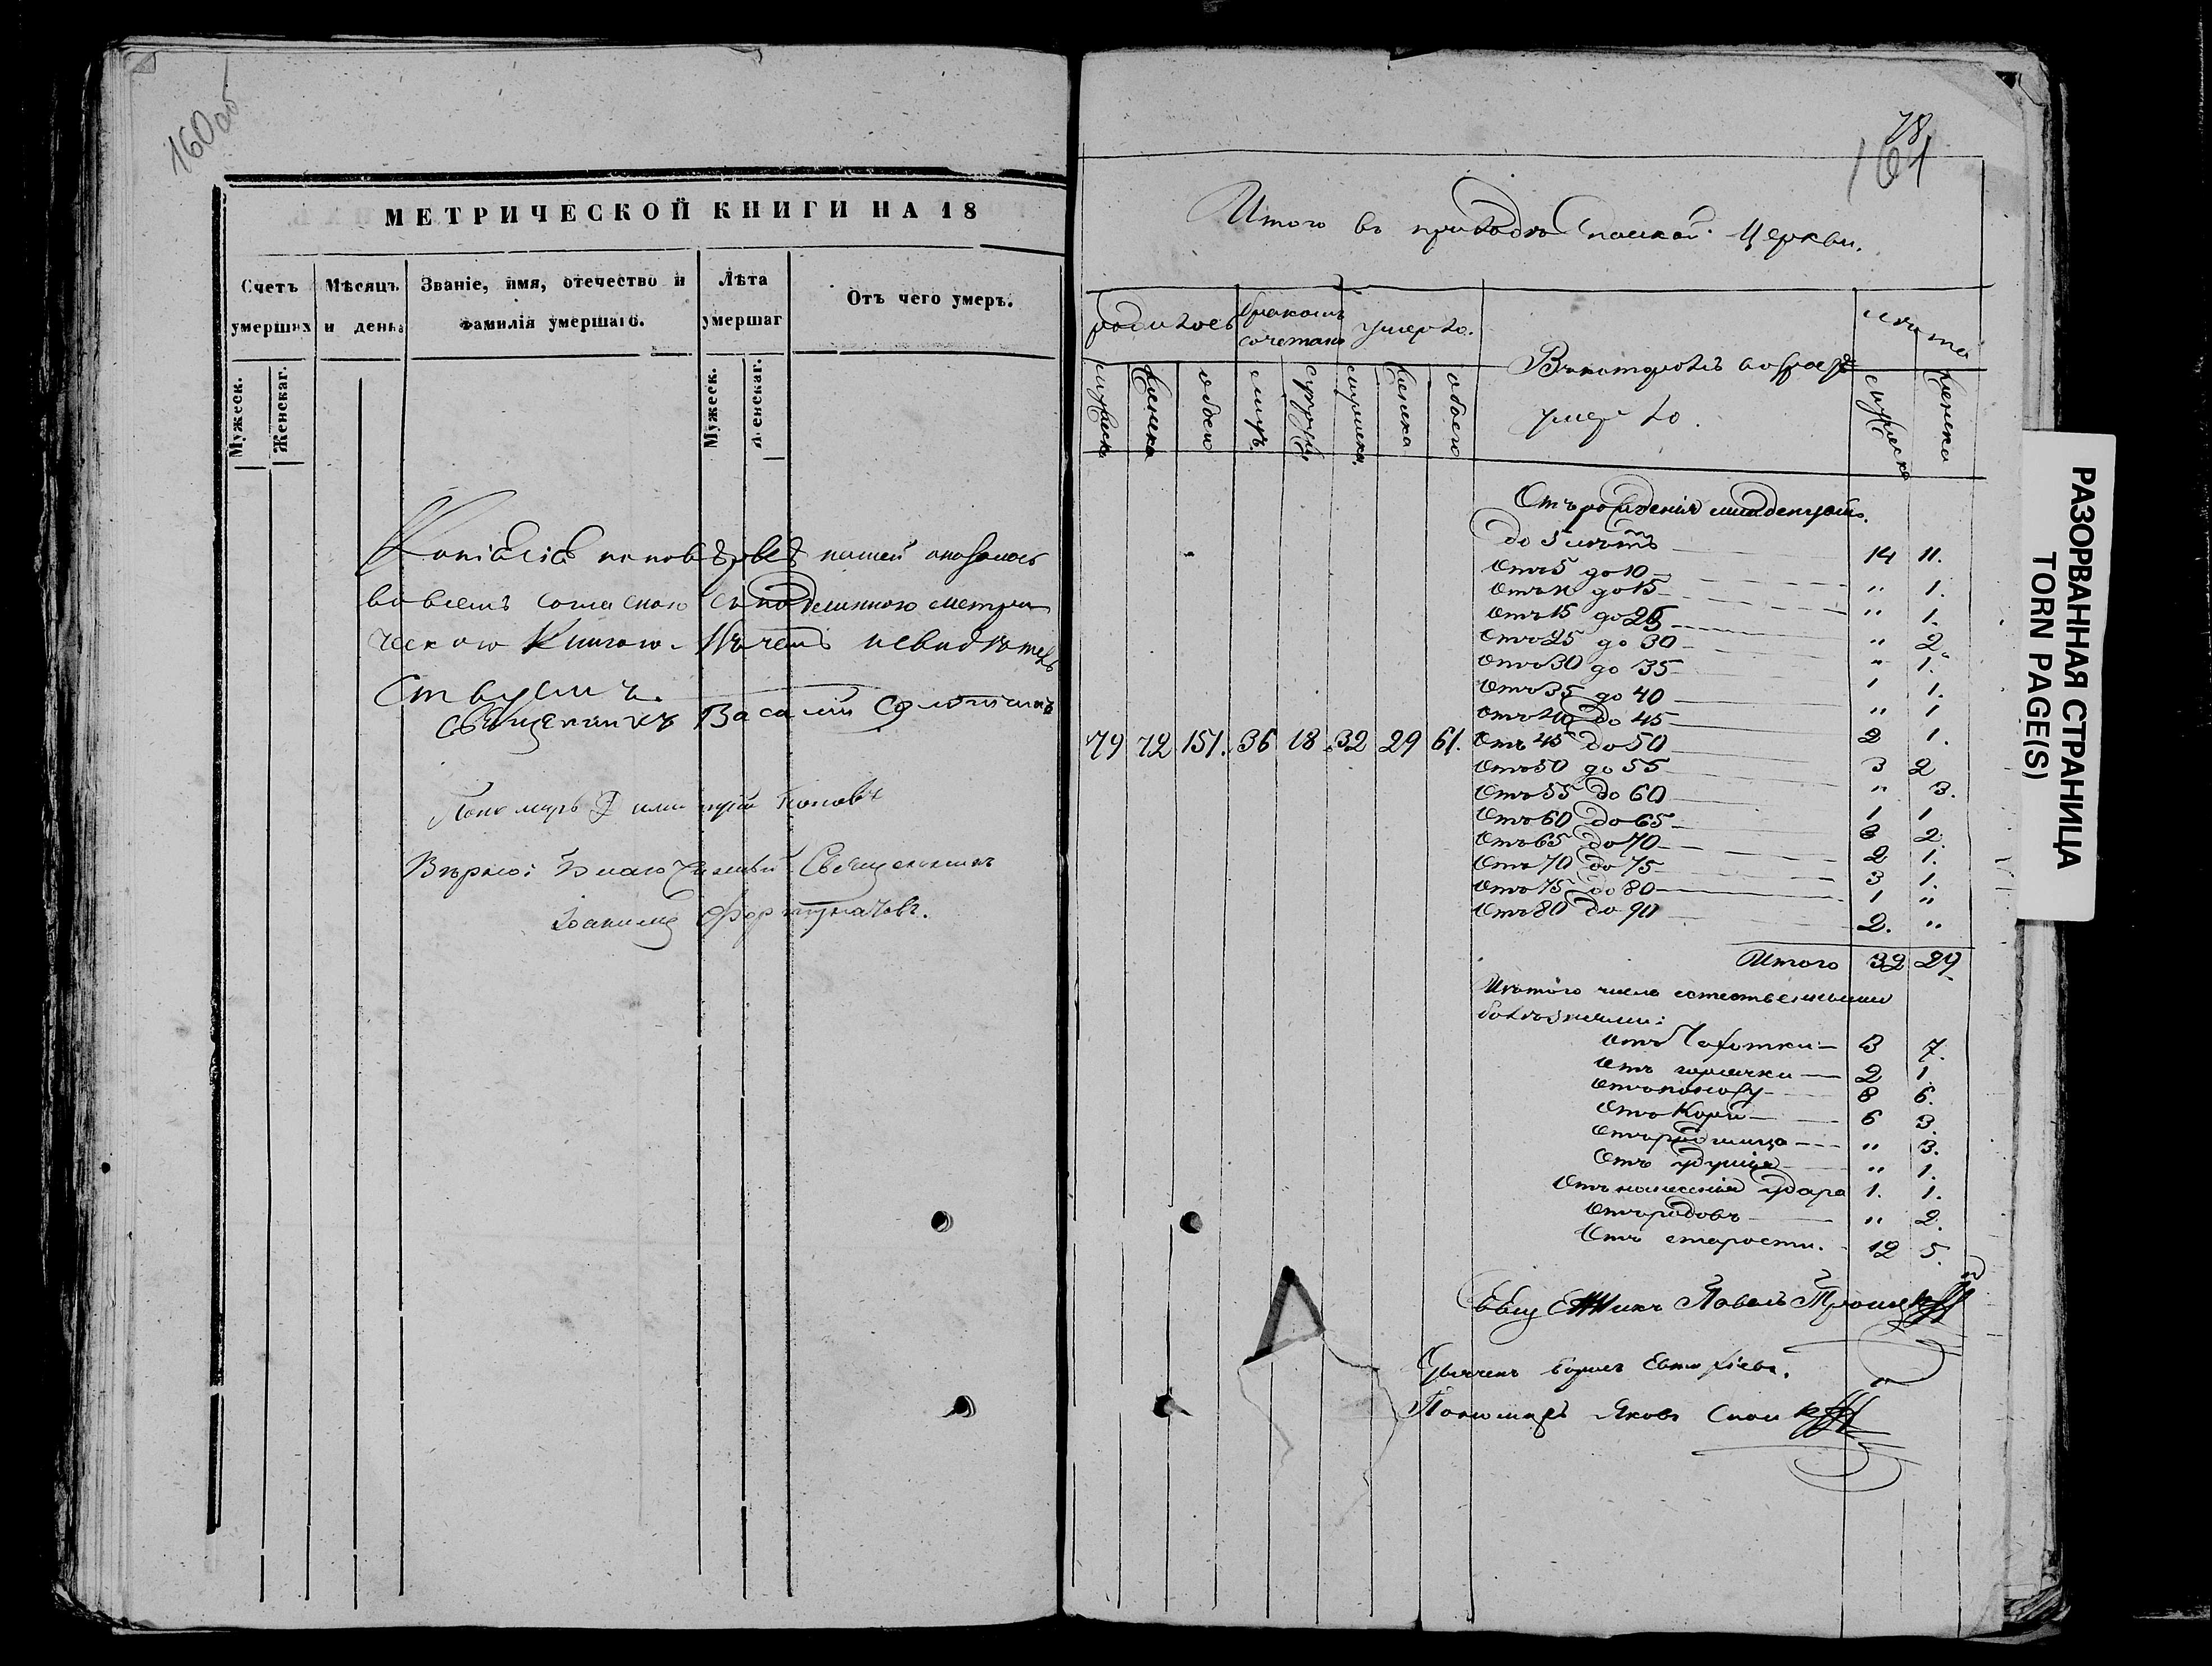 160 об
МЕТРИЧЕСКОЙ КНИГИ НА 18
Счетъ умершихъ
Мѣсяцъ и день
Званіе, имя, отечество и фамилія умершаго.
Лѣта умершаг
Отъ чего умеръ.
Мужеск.
Женскаг.
Мужеск.
Женскаг.
Копія сія по повѣркѣ нашей оказалась
во всемъ согласною съ подлинною метри
ческою Книгою. Въ чемъ и свидѣтель
ствуемъ.
Священникъ Василій
Пономарь Димитрій Поповъ
Вѣрно: Благочинный Священникъ
Іоаннъ Фортунатовъ.
78
161
Итого въ приходѣ Спаской Церкви.
родилось
бракомъ сочетано
умерло.
Въ которыхъ
умерло.
лѣта
мужеск
женска
обоего
муж.
супруж
мужеска
женска
обоего
мужеска
женска
Отъ рожденія младенцовъ.
до 5 лѣтъ 14 11.
Отъ 5 до 10 " 1.
Отъ 10 до 15 " 1.
Отъ 15 до 25 " 2.
Отъ 25 до 30 " 1.
Отъ 30 до 35 1 1.
Отъ 35 до 40 " 1
Отъ 40 до 45 2 1.
79 72 151. 36 18 32 29 61. Отъ 45 до 50 3 2
Отъ 50 до 55 " 3.
Отъ 55 до 60 1 1
Отъ 60 до 65 3 2
Отъ 65 до 70 2 1.
Отъ 70 до 75 3 1.
Отъ 75 до 80 1 "
Отъ 80 до 90 2. "
Итого 32 29
Изъ того числа естественными
болѣзнями:
Отъ Чахотки 3 7.
Отъ горячки 2 1
Отъ поносу 8 6.
Отъ Кори 6 3.
Отъ родимца " 3.
Отъ удушья " 1.
Отъ нанесенія удара 1. 1.
Отъ родовъ " 2.
Отъ старости. 12 5.
Священникъ Павелъ Троицкій
Дьяченъ Борисъ Евтихіевъ.
Пономарь Яковъ Спаскій
РАЗОРВАННАЯ СТРАНИЦА
TORN PAGE(S)